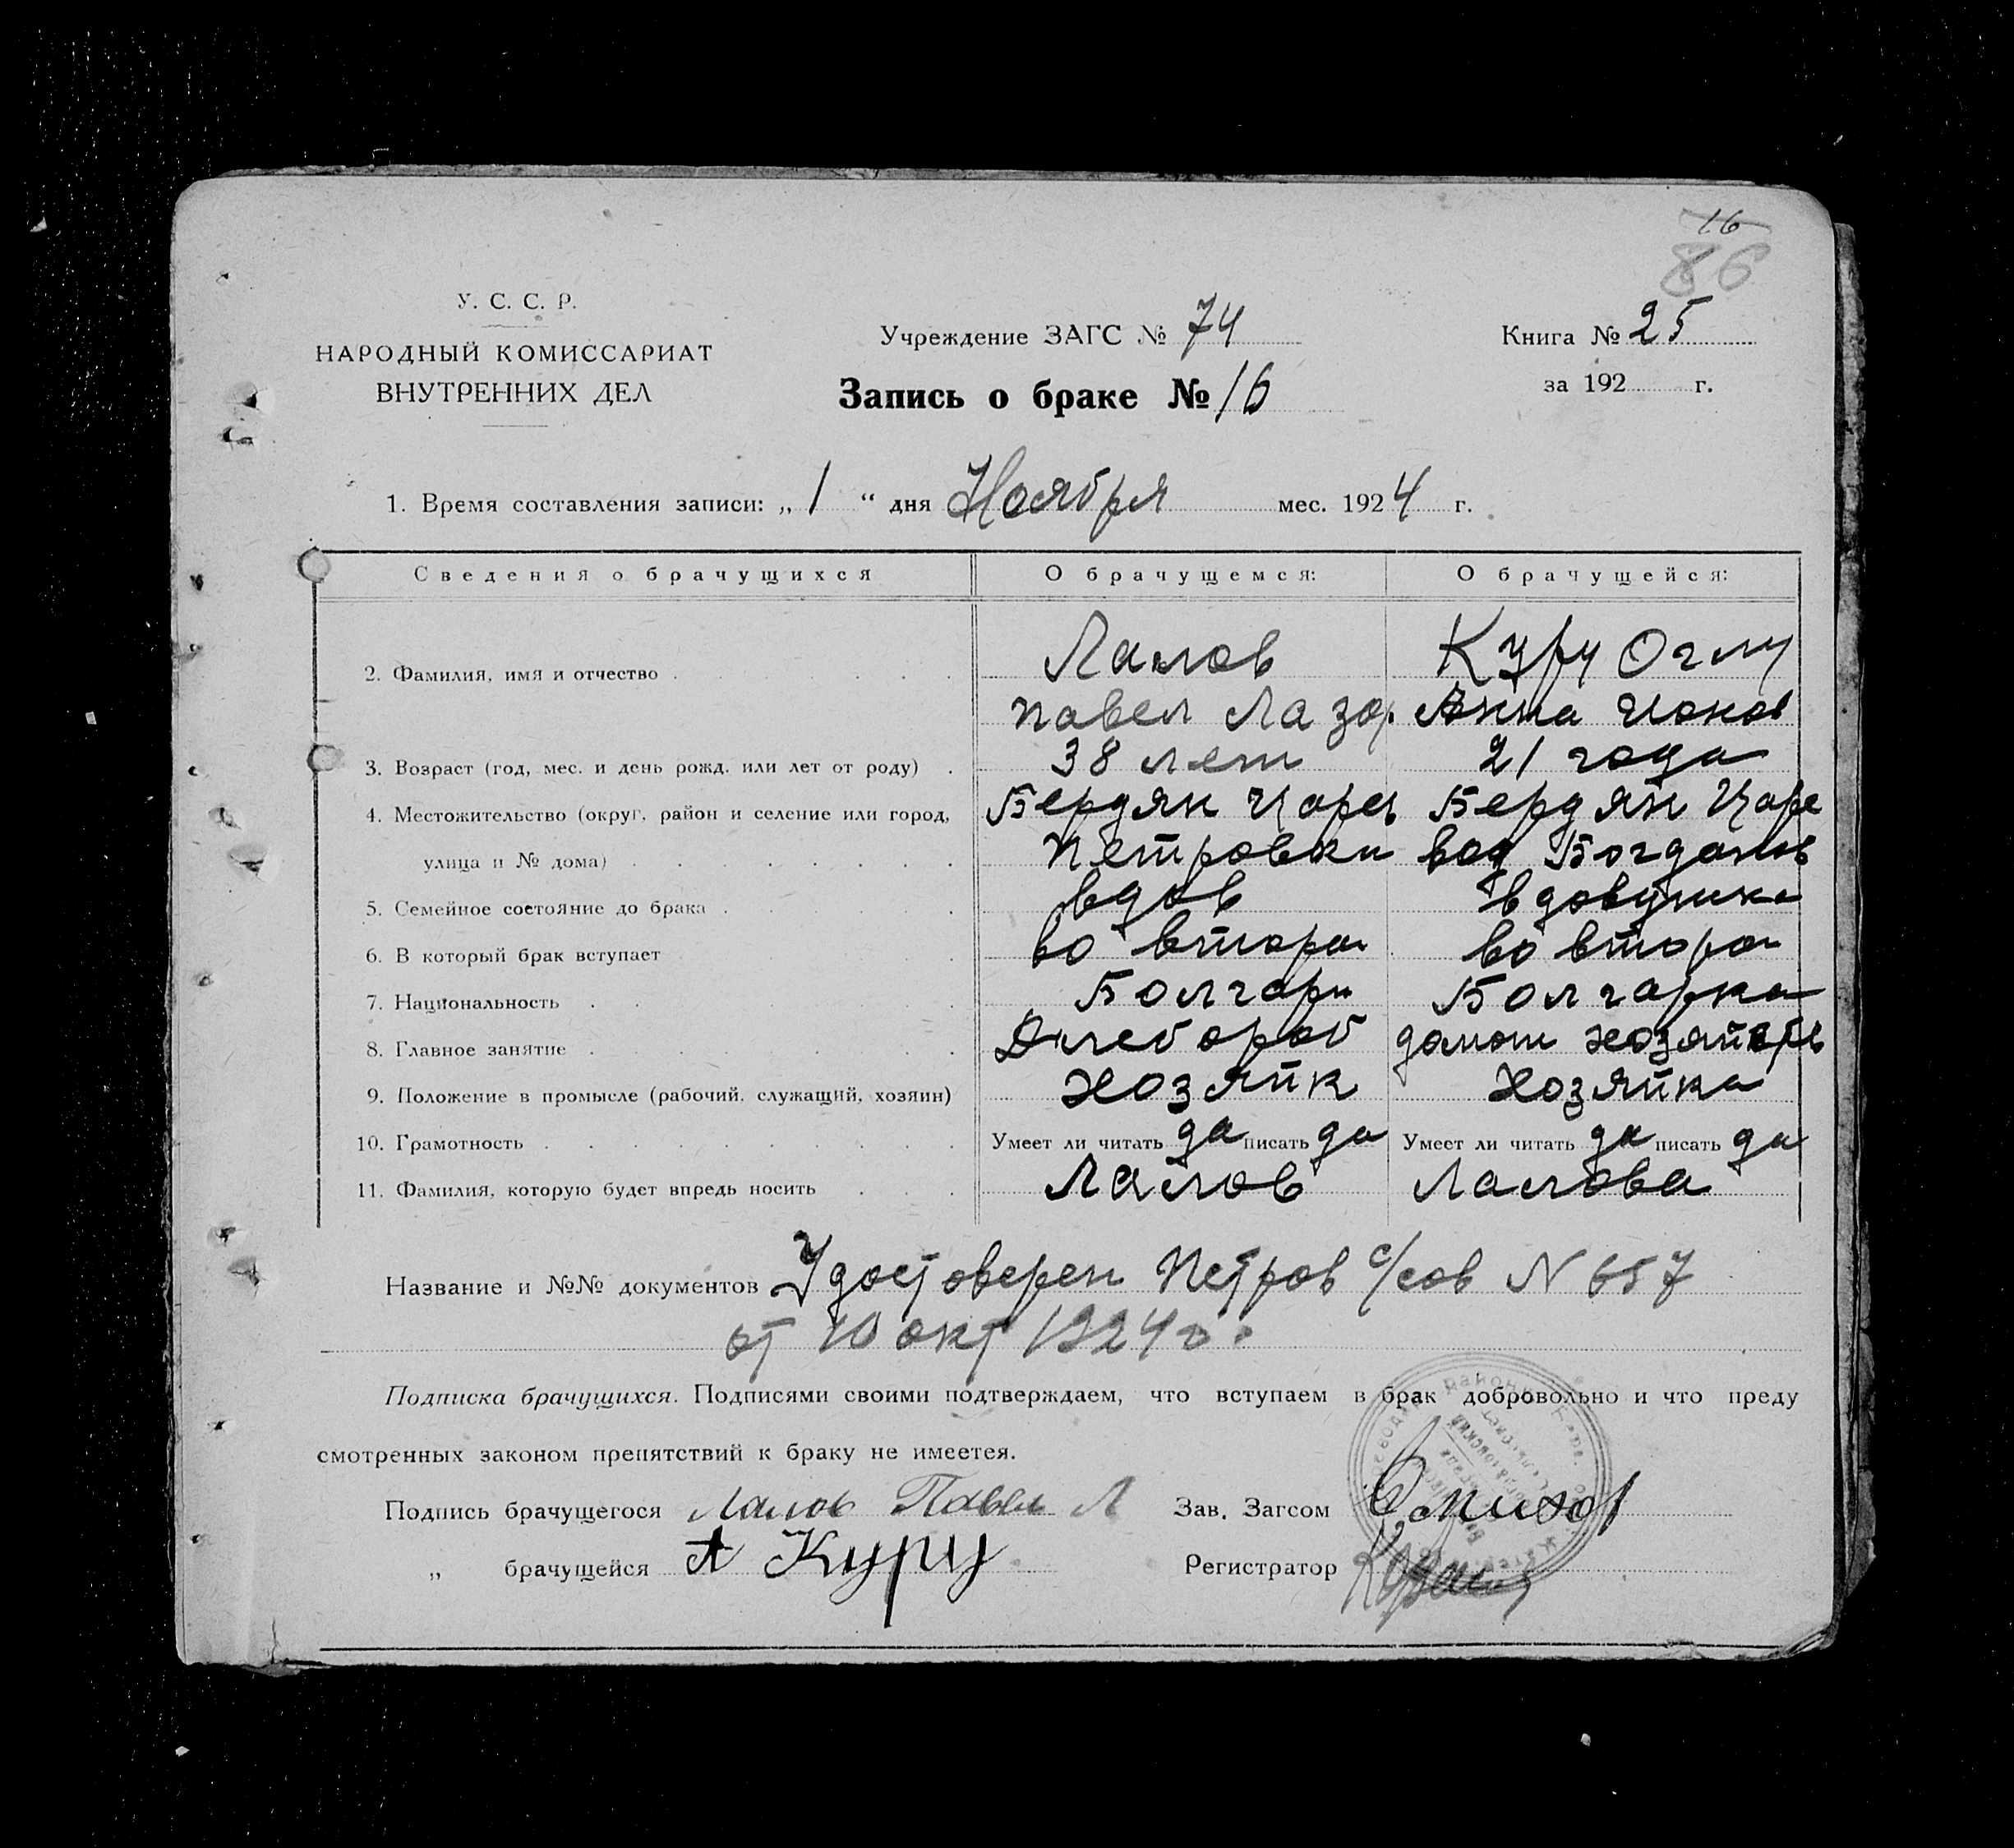 16
86
У. С. С. Р.
НАРОДНЫЙ КОМИССАРИАТ
ВНУТРЕННИХ ДЕЛ
Учреждение ЗАГС № 74
Книга № 25
Запись о браке № 16
за 192 г.
1. Время составления записи: „ 1 “ дня Ноября мес. 1924 г.
Сведения о брачущихся О брачущемся: О брачущейся:
2. Фамилия, имя и отчество Лалов Куру Оглу
Павел Лазар Анна Ионов
3. Возраст (год, мес. и день рожд. или лет от роду) 38 лет 21 года
4. Местожительство (округ, район и селение или город, Бердян Царев Бердян Царе
улица и № дома) Петровки вод Богданов
5. Семейное состояние до брака вдов вдовушка
6. В который брак вступает во втором во втором
7. Национальность Болгарин Болгарка
8. Главное занятие Хлебороб домаш
9. Положение в промысле (рабочий, служащий, хозяин) хозяин Хозяйка
10. Грамотность Умеет ли читать да писать да Умеет ли читать да писать да
11. Фамилия, которую будет впредь носить Лалов Лалова
Название и №№ документов Удостоверен Петров с/сов N 657
от 10 окт 1924 г.
Подписка брачущихся. Подписями своими подтверждаем, что вступаем в брак добровольно и что преду
смотренных законом препятствий к браку не имеется.
Подпись брачущегося Лалов Павел Л Зав. Загсом
„ брачущейся А Куру Регистратор